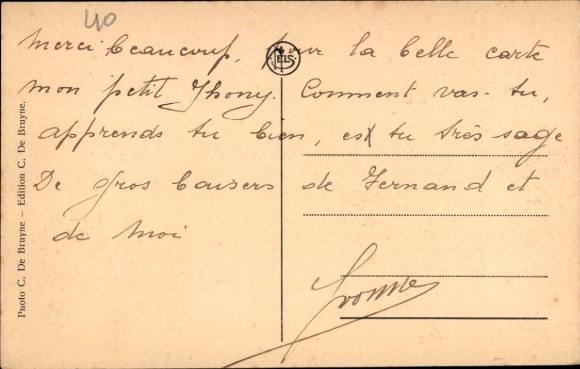 40
Merci beaucoup, pour la belle carte
mon petit Jhony. Comment vas-tu,
apprends tu bien, est tu très sage
De gros baisers de Fernand et
de moi
Yvonne
NELS
Photo C. De Bruyne – Edition C. De Bruyne.